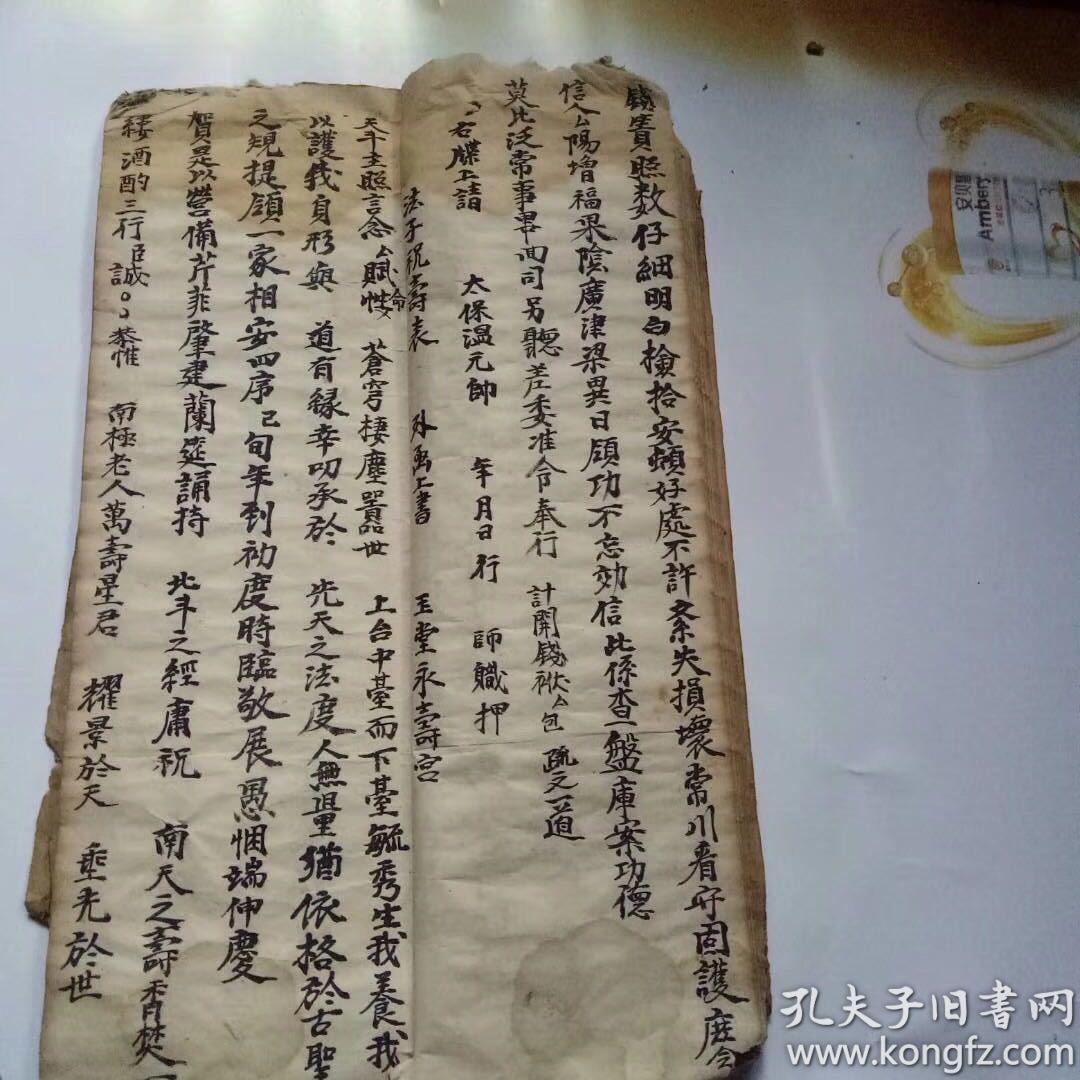 錢賫照数仔細明白檢拾安頓好處不許紊失損壞常川看守固護庶令
信厶陽增福果陰廣津梁異日領功不忘効信此係查盤庫案功德
莫比泛常事畢回司另聽差委准令奉行 計開錢袱厶包 疏文一道
右牒上請 太保溫元帥 年月日行 師職押
法子祝壽表 外函上書 玉堂永壽宮
天斗主照言念厶賦性命 蒼穹棲塵囂世 上台中臺而下臺毓秀生我養我
以護我身形與 道有緣幸叨承於 先天之法度人無量猶依格於古聖
之規提領一家相安四序己旬年到初度時臨敬展愚悃端伸慶
賀是以營備芹菲肇建蘭筵誦持 北斗之經庸祝 南天之壽香焚一
縷酒酌三行臣誠〻恭惟 南極老人萬壽星君 耀景於天 垂光於世
安贝
Ambery
孔夫子旧书网
www.kongfz.com